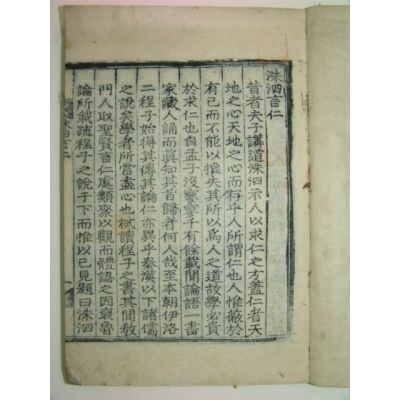 洙泗言仁
昔者夫子講道洙泗示人以求仁之方蓋仁者天
地之心天地之心而存乎人所謂仁也人惟蔽於
有己而不能以推失其所以爲人之道故學必貴
於求仁也自孟子沒寥寥千有餘載間論語一書
家藏人誦而眞知其旨歸者何人哉至本朝伊洛
二程子始得其傳其論仁亦異乎秦漢以下諸儒
之說矣學者所當盡心也栻讀程子之書其間教
門人取聖賢言仁處類聚以觀而體認之因裒魯
論所載疏程子之說于下而推以己見題曰洙泗